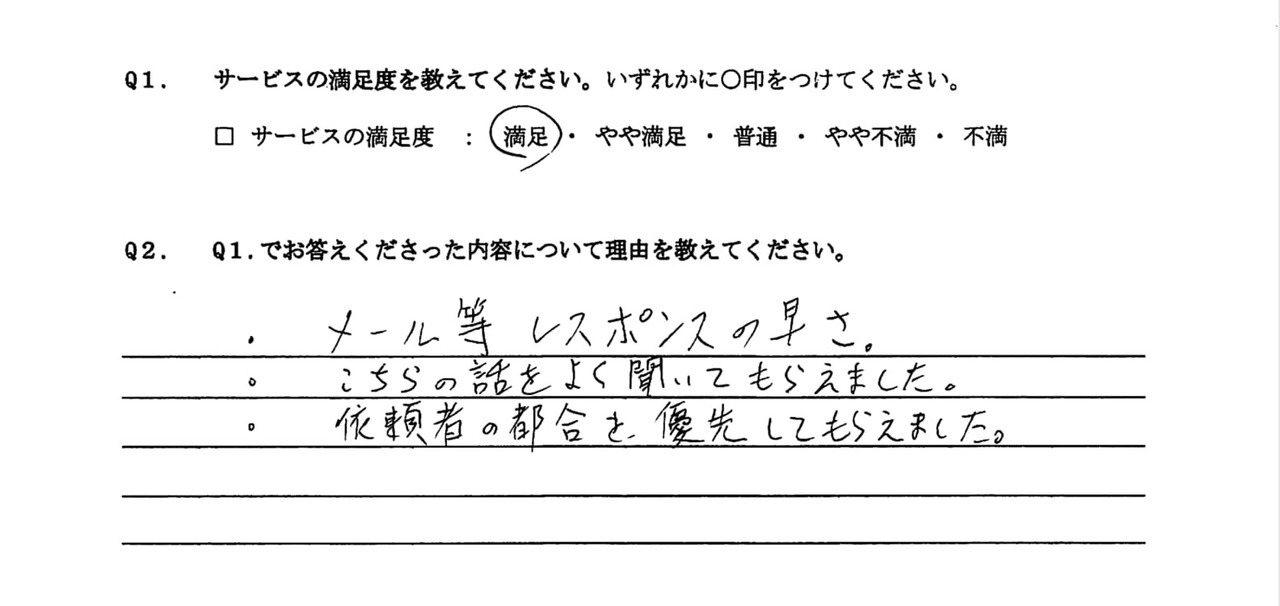 Q1. サービスの満足度を教えてください。いずれかに〇印をつけてください。
□ サービスの満足度 : 満足 ・ やや満足 ・ 普通 ・ やや不満 ・ 不満
Q2. Q1.でお答えくださった内容について理由を教えてください。
・ メール等 レスポンスの早さ。
。 こちらの話をよく聞いてもらえました。
。 依頼者の都合を優先してもらえました。